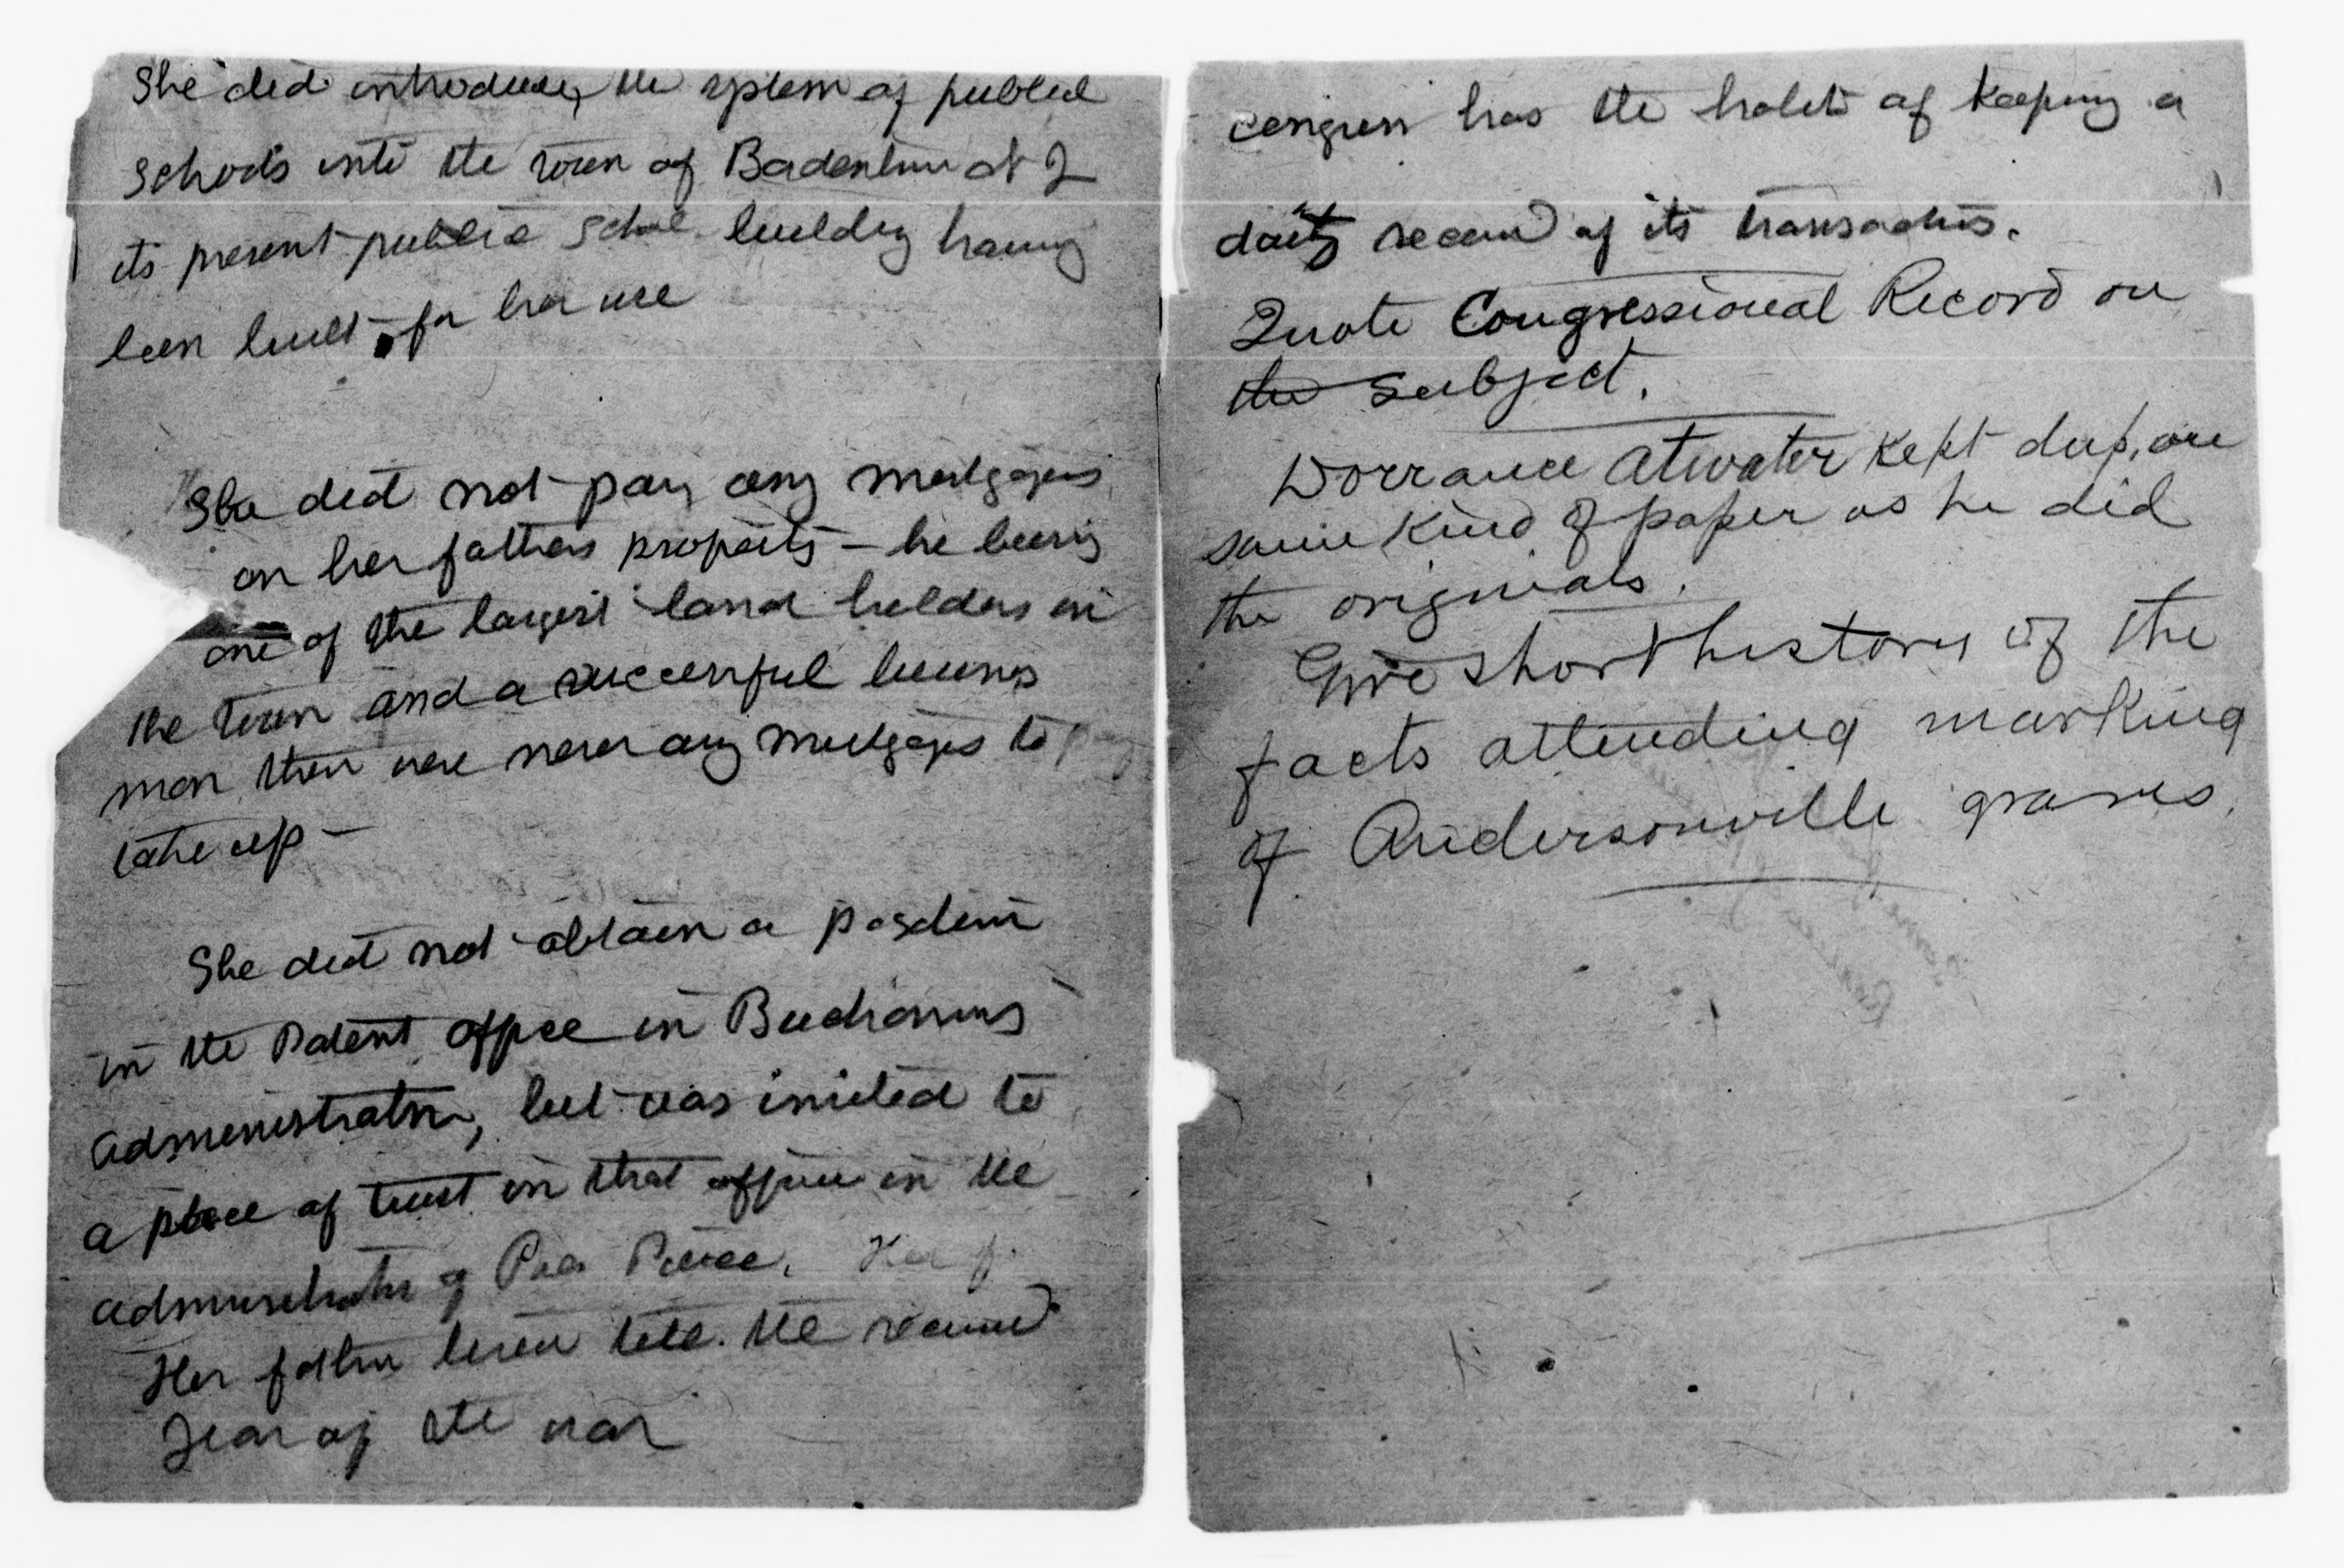 She did introduce, the system of public
schools into the town of Bordentown N J
its present public school building having
been built for her use
She did not pay any mortgages
on her fathers property – he being
one of the largest land holders in
the town and a successful business
man there were never any mortgages to pay
take up –
She did not obtain a position
in the Patent office in Buchanans
administration, but was invited to
a place of trust in that office in the
administration of Pres Pierce. Her f
Her father lived till the second
year of the war
Congress has the habit of keeping a
daily record of its transactions.
Quote Congressional Record on
the subject.
Dorrance Atwater kept dup. on
same kind of paper as he did
the originals.
Give short history of the
facts attending marking
of Andersonville graves.